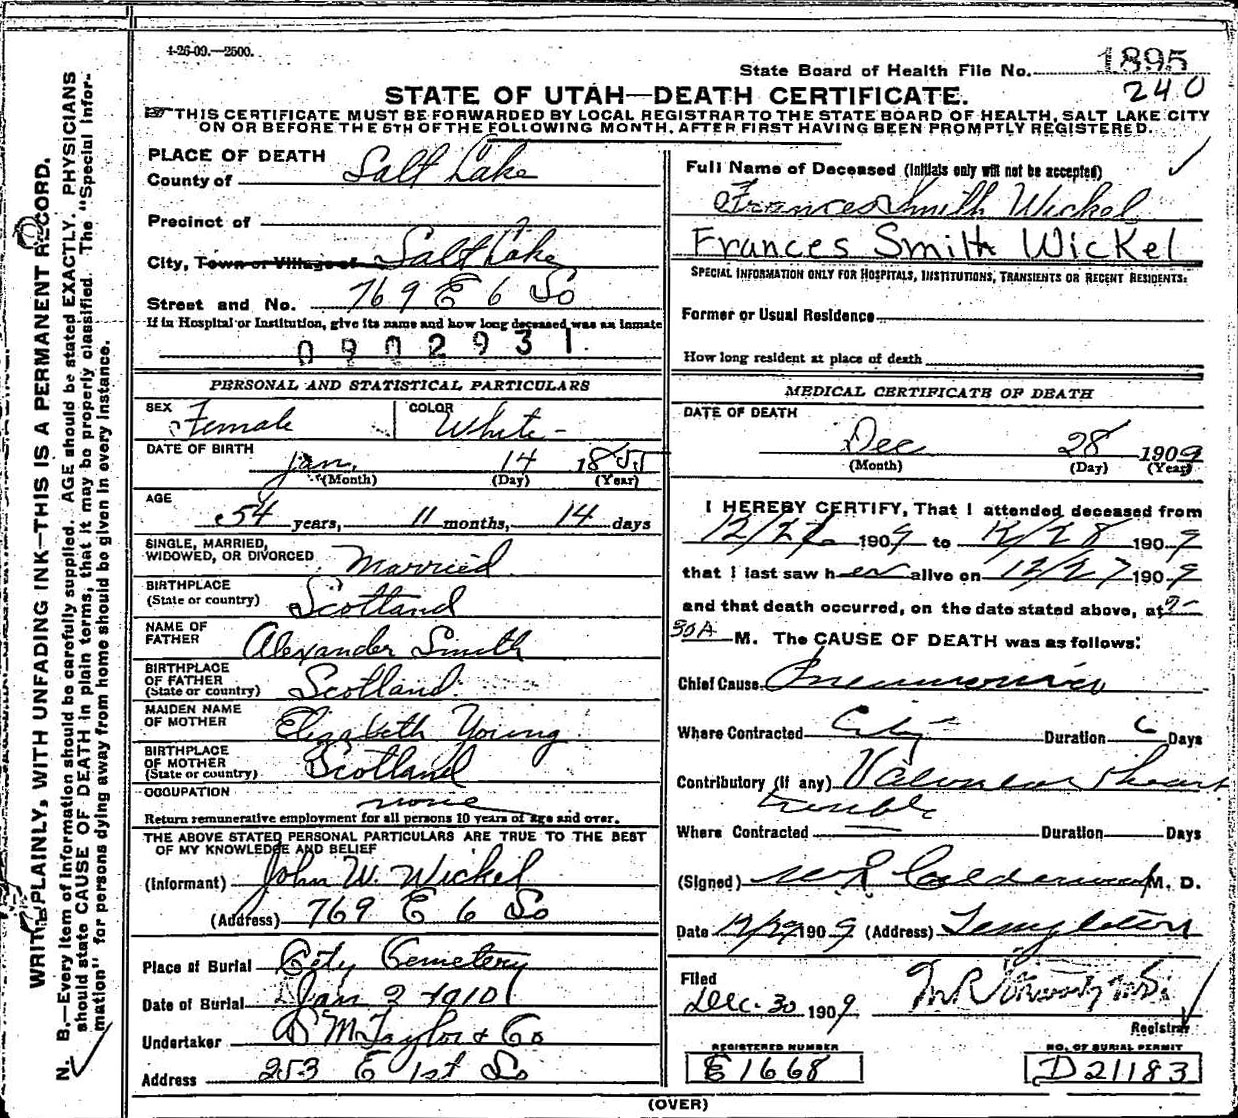 4-26-09.—2500.
State Board of Health File No. 1895
240
STATE OF UTAH—DEATH CERTIFICATE.
THIS CERTIFICATE MUST BE FORWARDED BY LOCAL REGISTRAR TO THE STATE BOARD OF HEALTH, SALT LAKE CITY
ON OR BEFORE THE 5TH OF THE FOLLOWING MONTH, AFTER FIRST HAVING BEEN PROMPTLY REGISTERED.
WRITE PLAINLY, WITH UNFADING INK—THIS IS A PERMANENT RECORD.
N. B.—Every item of information should be carefully supplied. AGE should be stated EXACTLY. PHYSICIANS
should state CAUSE OF DEATH in plain terms, that it may be properly classified. The "Special Infor-
mation" for persons dying away from home should be given in every instance.
PLACE OF DEATH
County of Salt Lake
Precinct of
City, Town or Village of Salt Lake
Street and No. 769 E 6 So
If in Hospital or Institution, give its name and how long deceased was an inmate
0902931
PERSONAL AND STATISTICAL PARTICULARS
SEX Female COLOR White
DATE OF BIRTH Jan. 14 1855
(Month) (Day) (Year)
AGE
54 years, 11 months, 14 days
SINGLE, MARRIED,
WIDOWED, OR DIVORCED Married
BIRTHPLACE
(State or country) Scotland
NAME OF
FATHER Alexander Smith
BIRTHPLACE
OF FATHER
(State or country) Scotland
MAIDEN NAME
OF MOTHER Elizabeth Young
BIRTHPLACE
OF MOTHER
(State or country) Scotland
OCCUPATION none
Return remunerative employment for all persons 10 years of age and over.
THE ABOVE STATED PERSONAL PARTICULARS ARE TRUE TO THE BEST
OF MY KNOWLEDGE AND BELIEF
(Informant) John W. Wickel
(Address) 769 E 6 So
Place of Burial City Cemetery
Date of Burial Jan 2 1910
Undertaker S M Taylor & Co
Address 253 E 1st So
Full Name of Deceased (Initials only will not be accepted)
Frances Smith Wickel
Frances Smith Wickel
SPECIAL INFORMATION ONLY FOR HOSPITALS, INSTITUTIONS, TRANSIENTS OR RECENT RESIDENTS:
Former or Usual Residence
How long resident at place of death
MEDICAL CERTIFICATE OF DEATH
DATE OF DEATH
Dec 28 1909
(Month) (Day) (Year)
I HEREBY CERTIFY, That I attended deceased from
12/22 1909 to 12/28 1909
that I last saw her alive on 12/27 1909
and that death occurred, on the date stated above, at
30 A M. The CAUSE OF DEATH was as follows:
Chief Cause Pneumonia
Where Contracted City Duration 6 Days
Contributory (if any) Valvular heart
trouble
Where Contracted Duration Days
(Signed) Calderwood M. D.
Date 12/29 1909 (Address) Templeton
Filed
Dec. 30 1909
Registrar
REGISTERED NUMBER
E 1668
NO. OF BURIAL PERMIT
D 21183
(OVER)